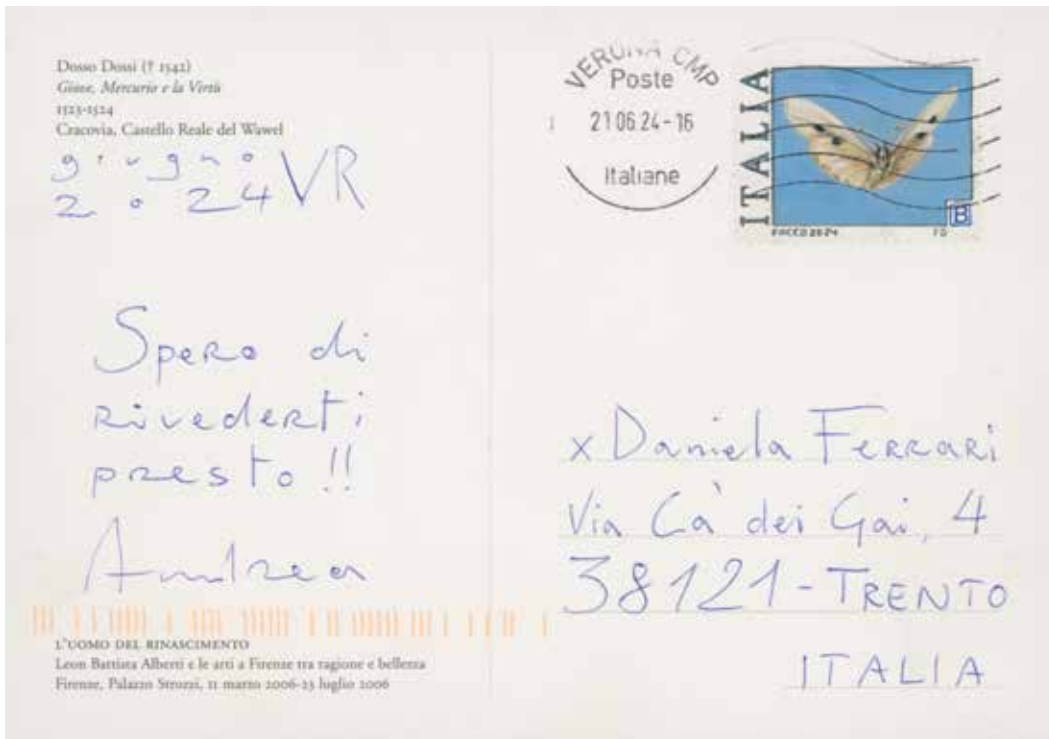 Dosso Dossi († 1542)
Giove, Mercurio e la Virtù
1523-1524
Cracovia, Castello Reale del Wawel
giugno
2024 VR
Spero di
rivederti
presto!!
Andrea
L'UOMO DEL RINASCIMENTO
Leon Battista Alberti e le arti a Firenze tra ragione e bellezza
Firenze, Palazzo Strozzi, 11 marzo 2006-23 luglio 2006
VERONA CMP
Poste
21 06 24-16
Italiane
ITALIA
B
FACCO 2024
TO
x Daniela Ferrari
Via Cà dei Gai, 4
38121-TRENTO
ITALIA